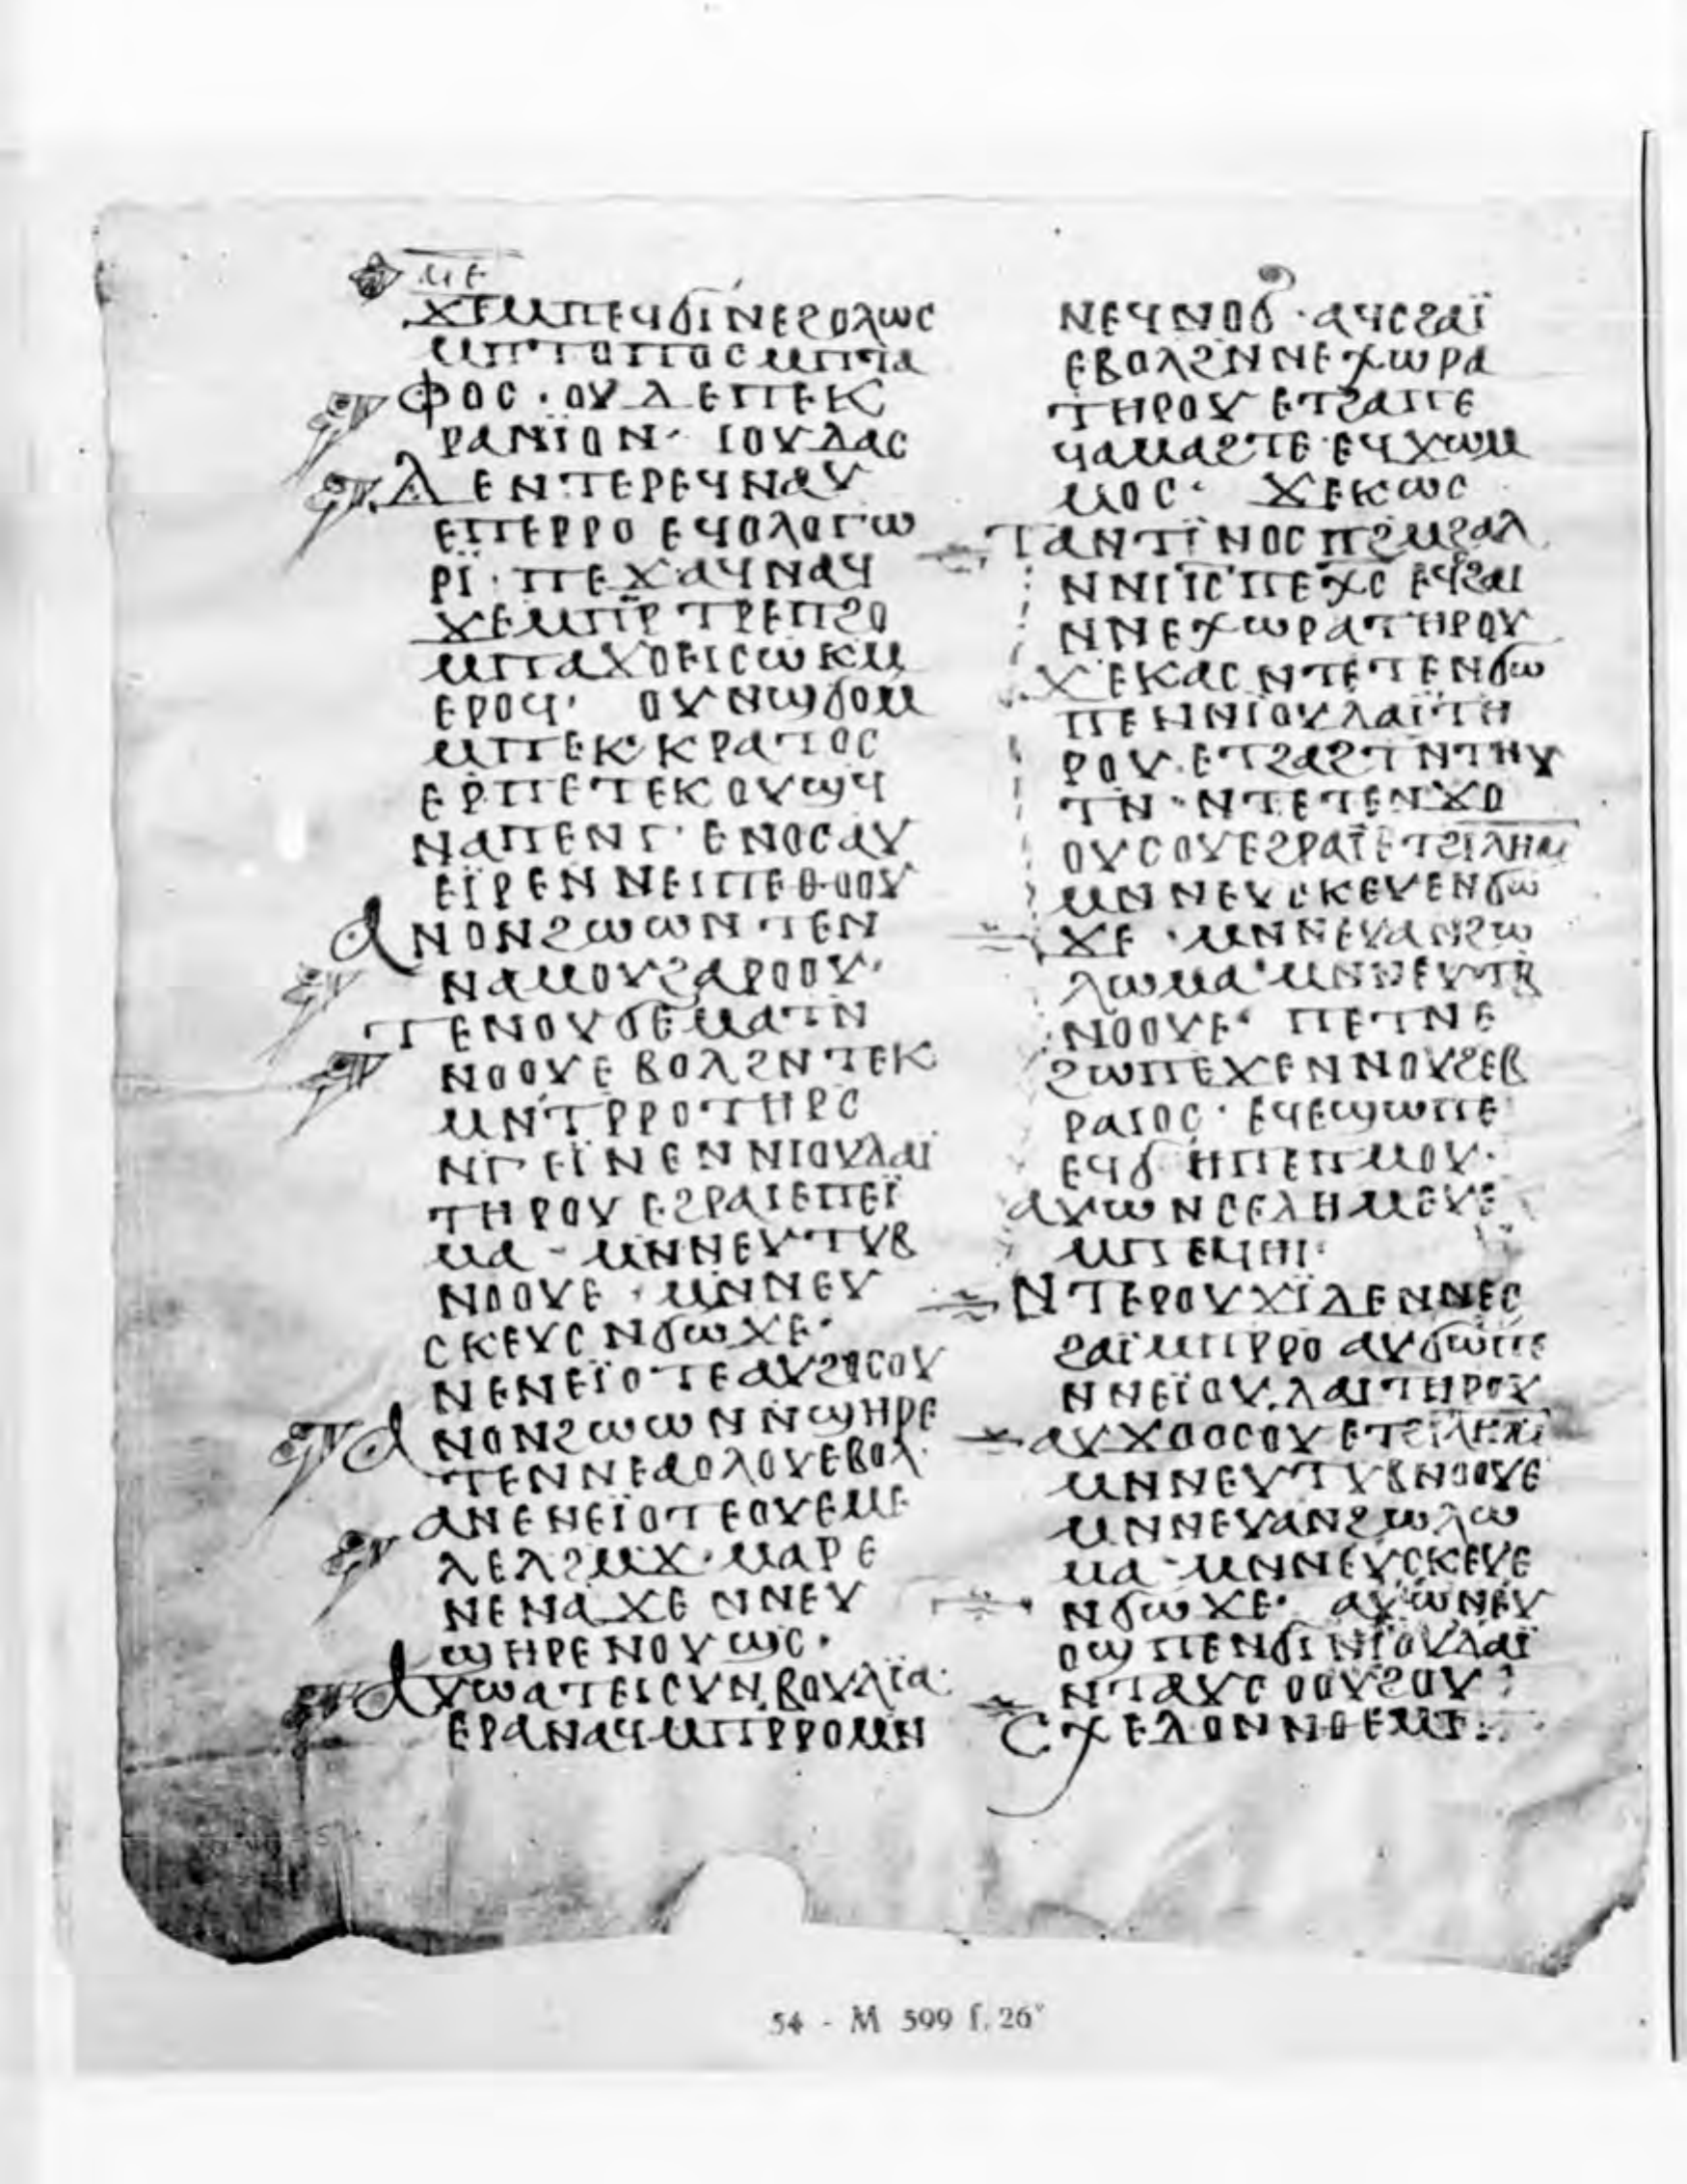 ⲙⲉ
ϫⲉⲙⲡⲉϥϭⲓⲛⲉϩⲟⲗⲱⲥ
ⲙⲡⲧⲟⲡⲟⲥⲙⲡⲧⲁ
ⲫⲟⲥ · ⲟⲩⲇⲉⲡⲉⲕ
ⲣⲁⲛⲓⲟⲛ · ⲓⲟⲩⲇⲁⲥ
ⲇⲉⲛⲧⲉⲣⲉϥⲛⲁⲩ
ⲉⲡⲉⲣⲣⲟ ⲉϥⲟⲗⲟⲅⲱ
ⲣⲓ̈ · ⲡⲉϫⲁϥⲛⲁϥ
ϫⲉⲙⲡⲣ̄ⲧⲣⲉⲡϩⲟ
ⲙⲡⲁϫⲟⲉⲓⲥⲱⲕⲙ
ⲉⲣⲟϥ · ⲟⲩⲛϣϭⲟⲙ
ⲙⲡⲉⲕⲕⲣⲁⲧⲟⲥ
ⲉⲣⲡⲉⲧⲉⲕⲟⲩⲱϣϥ
ⲛⲁⲡⲉⲛⲅⲉⲛⲟⲥⲁⲩ
ⲉⲓ̈ⲣⲉⲛⲛⲉⲓⲡⲉⲑⲟⲟⲩ
ⲁⲛⲟⲛϩⲱⲱⲛⲧⲉⲛ
ⲛⲁⲙⲟⲩϩⲁⲣⲟⲟⲩ ·
ⲧⲉⲛⲟⲩϭⲉⲙⲁⲧⲛ
ⲛⲟⲟⲩⲉⲃⲟⲗϩⲛⲧⲉⲕ
ⲙⲛⲧⲣⲣⲟⲧⲏⲣⲥ
ⲛⲅⲉⲓ̈ⲛⲉⲛⲛⲓⲟⲩⲇⲁⲓ̈
ⲧⲏⲣⲟⲩⲉϩⲣⲁⲓⲉⲡⲉⲓ̈
ⲙⲁ - ⲙⲛⲛⲉⲩⲧⲩⲃ
ⲛⲟⲟⲩⲉ · ⲙⲛⲛⲉⲩ
ⲥⲕⲉⲩⲥⲛϭⲱϫⲉ ·
ⲛⲉⲛⲉⲓ̈ⲟⲧⲉⲁⲩϩⲓⲥⲟⲩ
ⲁⲛⲟⲛϩⲱⲱⲛⲛϣⲏⲣⲉ
ⲧⲉⲛⲛⲉⲁⲟⲗⲟⲩⲉⲃⲟⲗ ·
ⲁⲛⲉⲛⲉⲓ̈ⲟⲧⲉⲟⲩⲉⲙⲉ
ⲗⲉⲗϩⲙϫ · ⲙⲁⲣⲉ
ⲛⲉⲛⲁϫⲉⲛⲛⲉⲩ
ϣⲏⲣⲉⲛⲟⲩϣⲥ ·
ⲁⲩⲱⲁⲧⲉⲓⲥⲩⲛⲃⲟⲩⲗⲓ̈ⲁ
ⲉⲣⲁⲛⲁϥⲙⲡⲣⲣⲟⲙⲛ
ⲛⲉϥⲛⲟϭ · ⲁϥⲥϩⲁⲓ̈
ⲉⲃⲟⲗϩⲛⲛⲉⲭⲱⲣⲁ
ⲧⲏⲣⲟⲩⲉⲧϩⲁⲡⲉ
ϥⲁⲙⲁϩⲧⲉ · ⲉϥϫⲱⲙ
ⲙⲟⲥ · ϫⲉⲕⲱⲥ
ⲧⲁⲛⲧⲓⲛⲟⲥⲡϩⲙϩⲁⲗ
ⲛⲛⲓ̅ⲥ̅ⲡⲉⲭ̅ⲥ̅ ⲉϥϩⲁⲓ
ⲛⲛⲉⲭⲱⲣⲁⲧⲏⲣⲟⲩ
ϫⲉⲕⲁⲥⲛⲧⲉⲧⲉⲛϭⲱ
ⲡⲉⲛⲛⲓⲟⲩⲇⲁⲓ̈ⲧⲏ
ⲣⲟⲩ · ⲉⲧϩⲁϩⲧⲛⲧⲏⲩ
ⲧⲛ · ⲛⲧⲉⲧⲉⲛϫⲟ
ⲟⲩⲥⲟⲩⲉϩⲣⲁⲓ̈ⲉⲧϩⲓ̅ⲗ̅ⲏ̅ⲙ̅
ⲙⲛⲛⲉⲩⲥⲕⲉⲩⲉⲛϭⲱ
ϫⲉ · ⲙⲛⲛⲉⲩⲁⲛϩⲱ
ⲗⲱⲙⲁ · ⲙⲛⲛⲉⲩⲧⲃ
ⲛⲟⲟⲩⲉ · ⲡⲉⲧⲛⲉ
ϩⲱⲡⲉϫⲉⲛⲛⲟⲩϩⲉⲃ
ⲣⲁⲓⲟⲥ · ⲉϥⲉϣⲱⲡⲉ
ⲉϥϭⲏⲡⲉⲡⲙⲟⲩ ·
ⲁⲩⲱⲛⲥⲉⲇⲏⲙⲉⲩⲉ
ⲙⲡⲉϥⲏⲓ ·
ⲛⲧⲉⲣⲟⲩϫⲓ̈ⲇⲉⲛⲛⲉⲥ
ϩⲁⲓ̈ⲙⲡⲣⲣⲟ ⲁⲩϭⲱⲡⲉ
ⲛⲛⲉⲓ̈ⲟⲩⲇⲁⲓⲧⲏⲣⲟⲩ
ⲁⲩϫⲟⲟⲥⲟⲩⲉⲧϩⲓ̅ⲗ̅ⲏ̅ⲙ̅
ⲙⲛⲛⲉⲩⲧⲩⲃⲛⲟⲟⲩⲉ
ⲙⲛⲛⲉⲩⲁⲛϩⲱⲗⲱ
ⲙⲁ - ⲙⲛⲛⲉⲩⲥⲕⲉⲩⲉ
ⲛϭⲱϫⲉ · ⲁⲩⲱⲛⲉⲩ
ⲟϣⲡⲉⲛϭⲓⲛⲓ̈ⲟⲩⲇⲁⲓ̈
ⲛⲧⲁⲩⲥⲟⲟⲩϩⲟⲩ :
ⲥⲭⲉⲇⲟⲛⲛⲑⲉⲙⲧ
54 - M 599 f. 26ᵛ